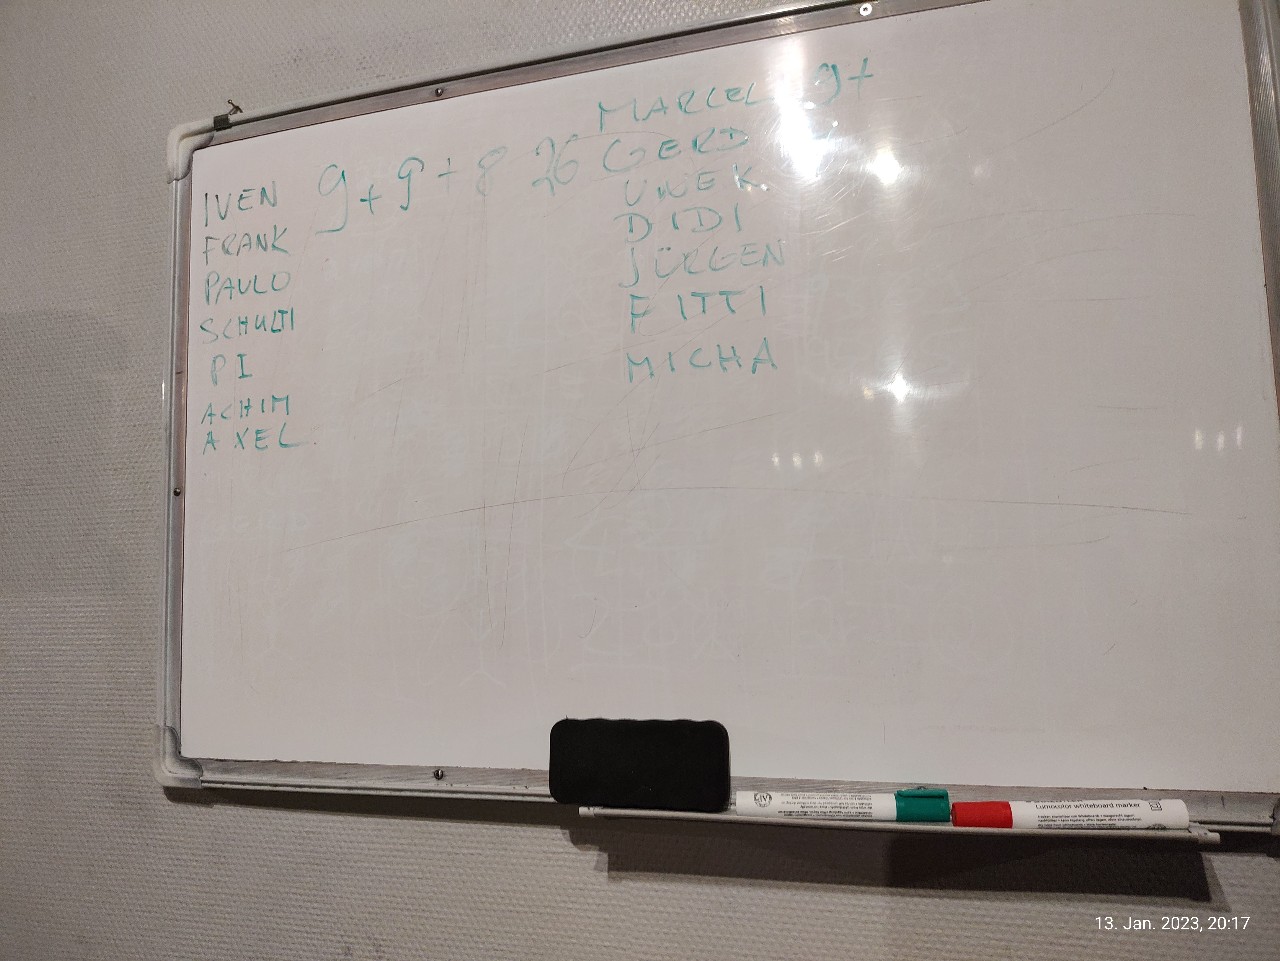 MARCEL 9+
IVEN 9+9+8 26 GERD
FRANK UWE K.
PAULO DIDI
SCHULTI JÜRGEN
PI FITTI
ACHIM MICHA
AXEL
Lumocolor whiteboard marker
13. Jan. 2023, 20:17